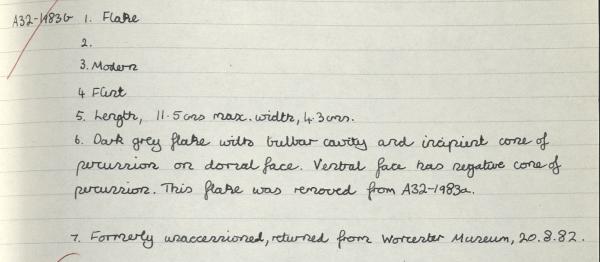 A32-1983G 1. Flake
2.
3. Modern
4 Flint
5. Length, 11.5cms max. width, 4.3cms.
6. Dark grey flake with bulbar cavity and incipient cone of
percussion on dorsal face. Ventral face has negative cone of
percussion. This flake was removed from A32-1983a.
7. Formerly unaccessioned, returned from Worcester Museum, 20.8.82.